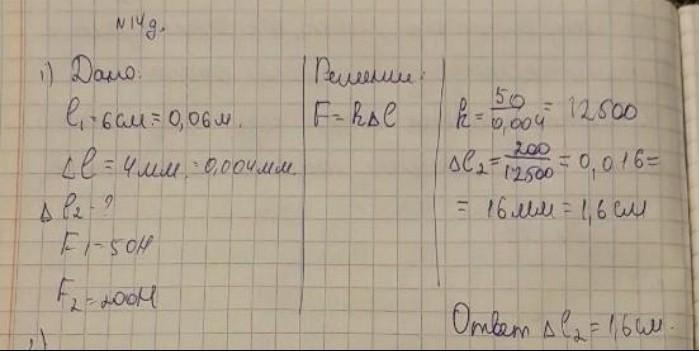 N14д.
1) Дано:
l₁ = 6см = 0,06м.
Δl = 4мм. = 0,004мм.
Δl₂ - ?
F₁ = 50Н
F₂ = 200Н
Решение:
F = kΔl
k = 50/0,004 = 12500
Δl₂ = 200/12500 = 0,016 =
= 16мм = 1,6см
Ответ Δl₂ = 1,6см.
2)